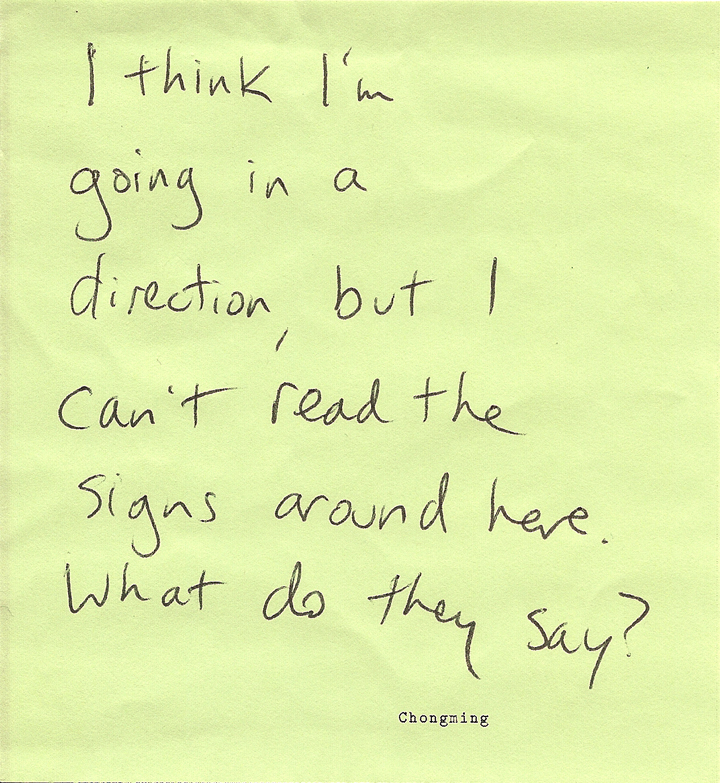 I think I'm
going in a
direction, but I
can't read the
signs around here.
What do they say?
Chongming